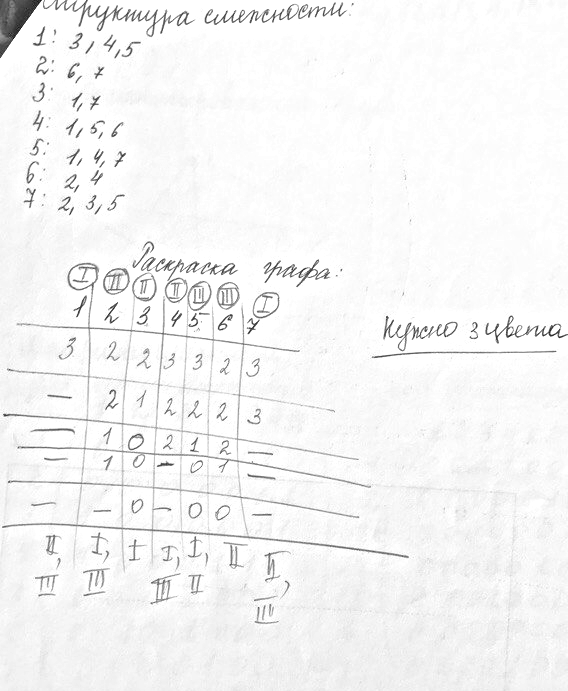 Структура смежности:
1: 3, 4, 5
2: 6, 7
3: 1, 7
4: 1, 5, 6
5: 1, 4, 7
6: 2, 4
7: 2, 3, 5
Раскраска графа:
I III II II III III I
1 2 3 4 5 6 7
Нужно 3 цвета
3 2 2 3 3 2 3
— 2 1 2 2 2 3
— 1 0 2 1 2 —
— 1 0 — 0 1 —
— — 0 — 0 0 —
II, I, I I, I, II II,
III III III II III